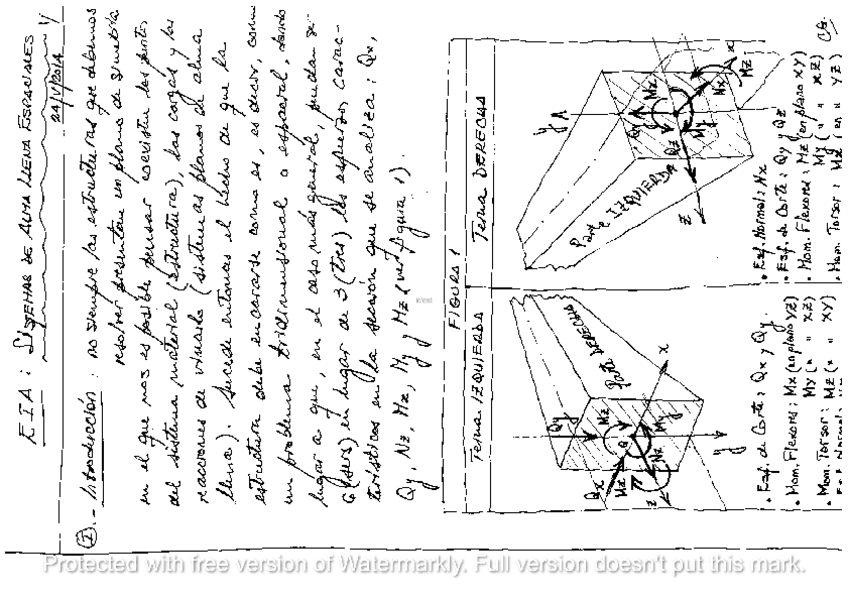 EIA: SISTEMAS DE ALMA LLENA ESPACIALES
29/V/2014
1/
I.- Introducción: no siempre las estructuras que debemos
resolver presentan un plano de simetría
en el que nos es posible pensar coexisten los puntos
del sistema material (estructura), las cargas y las
reacciones de vínculo (sistemas planos de alma
llena). Sucede entonces el hecho de que la
estructura debe encararse como es, es decir, como
un problema tridimensional o espacial, dando
lugar a que, en el caso más general, puedan se-
6 (seis) en lugar de 3 (tres) los esfuerzos carac-
terísticos en la sección que se analiza: Qx,
Qy, Nz, Mx, My y Mz (ver figura 1).
FIGURA 1
Terna IZQUIERDA
Terna DERECHA
Parte DERECHA
Qy
Mz
x
Qx
Mx
My
Nz
z
y
• Esf. de Corte: Qx y Qy.
• Mom. Flexores: Mx (en plano YZ)
My (" " XZ)
• Mom. Torsor: Mz (" " XY)
y
Parte IZQUIERDA
Qy
Mz
x
Mx
Nx
Qz
My
z
• Esf. Normal: Nx
• Esf. de Corte: Qy y Qz
• Mom. Flexores: Mz (en plano XY)
My (" " XZ)
• Mom. Torsor: Mx (en " YZ)
CG.
Protected with free version of Watermarkly. Full version doesn't put this mark.